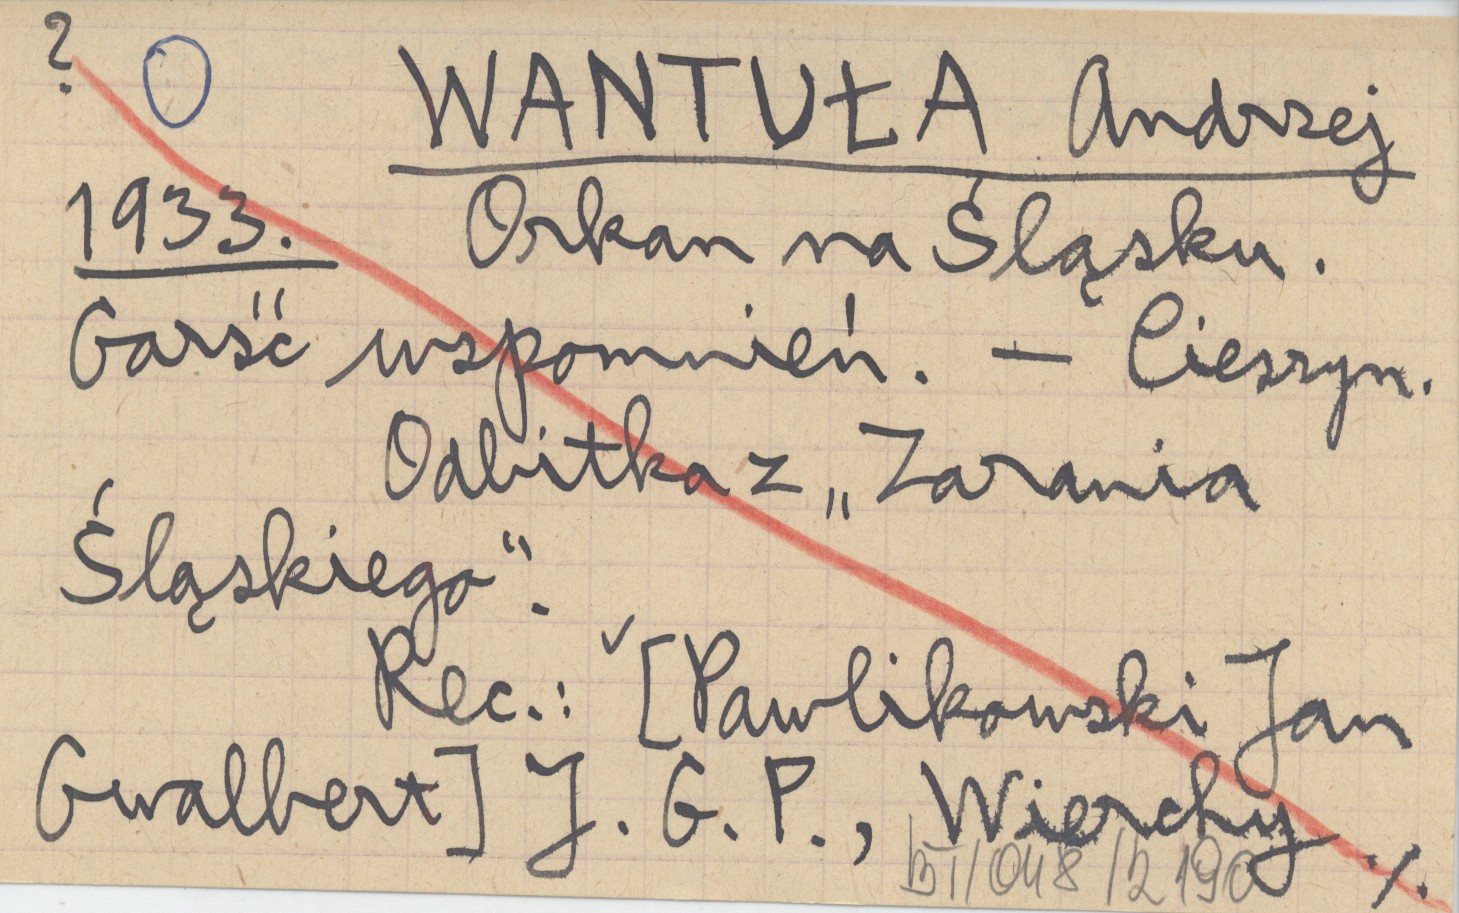 ?
WANTUŁA Andrzej
1933. Orkan na Śląsku.
Garść wspomnień. — Cieszyn.
Odbitka z „Zarania
Śląskiego".
Rec.: [Pawlikowski Jan
Gwalbert] J. G. P., Wierchy
BT/048/2190 ./.